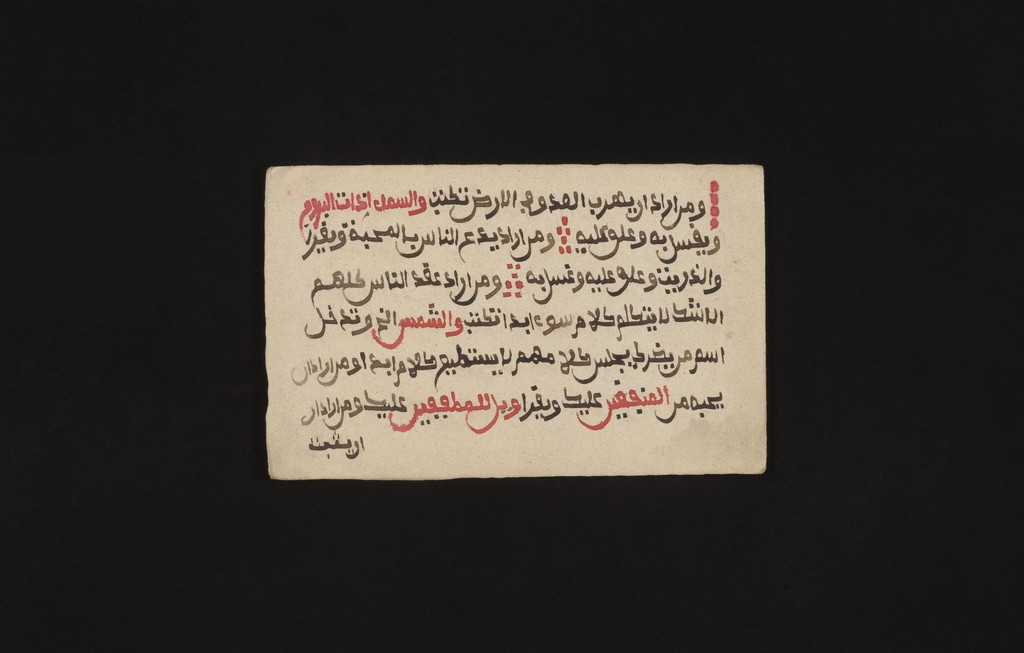 ومن اراد ان يهرب العدو في الارض تكتب والسماء ذات البروج
ويغسل به وعلو عليه ومن اراد يدعم الناس بالمحبة ويقرا
والذريت وعلو عليه وغسل به ومن اراد عقد الناس كلهم
لا يتكلم كلام سوء ابدا تكتب والشمس الخ وتدخل
اسم من يجلس كلام منهم لا يستطيع كلام ابدا ومن اراد ان
من عليك ويقرا ويل للمطففين عليك ومن اراد ان